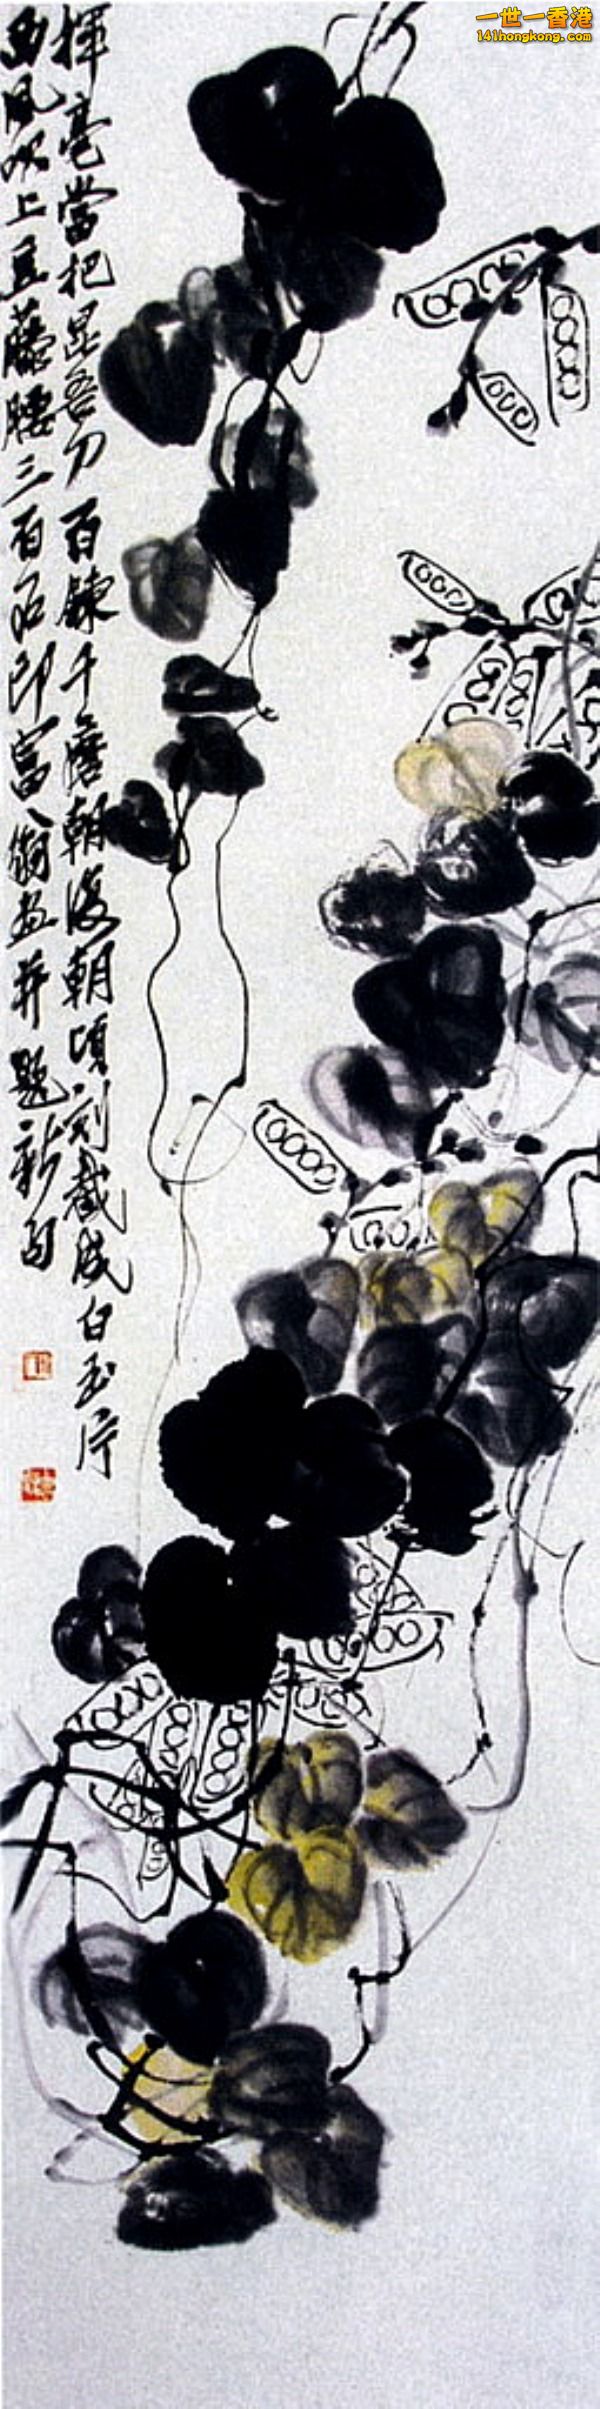 一世一香港
141hongkong.com
揮毫當把昆吾刀百鍊千磨朝復朝頃刻裁成白玉片
西風吹上豆藤腰三百石印富翁畫并題新句